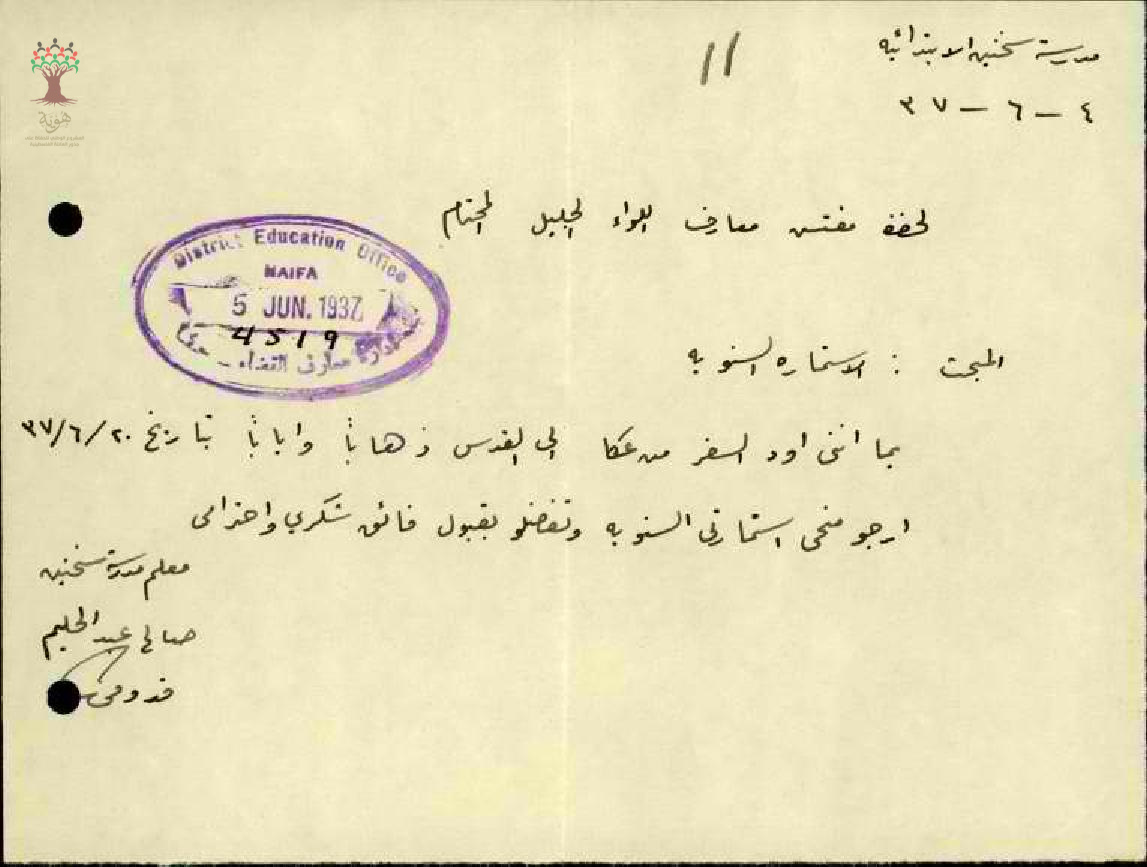 مدرسة سخنين الابتدائيه
٤ – ٦ – ٣٧
11
هوية
لحضرة مفتش معارف لواء الجليل المحترم
District Education Office
HAIFA
5 JUN. 1937
4519
معارف القضاء
المبحث : الاستماره السنويه
بما انني اود السفر من عكا الى القدس ذهاباً واياباً بتاريخ ٢٠/٦/٣٧
ارجو منحي استمارتي السنويه وتفضلوا بقبول فائق شكري واحترامي
معلم مدرسة سخنين
صالح عبد الحليم
قدومي